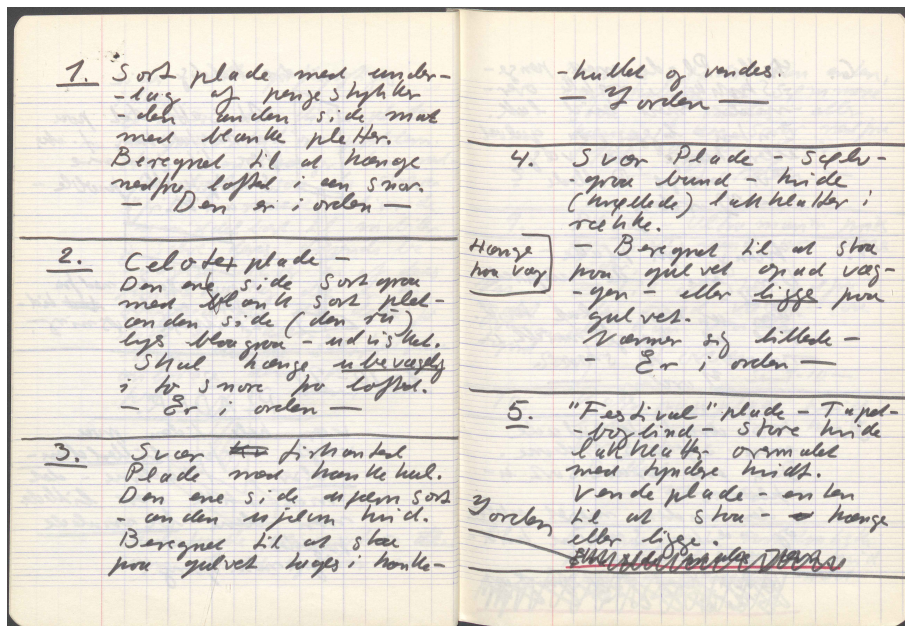 1. Sort plade med under-
-lag af pengestykker
- den anden side mat
med blanke pletter.
Beregnet til at hænge
nedfra loftet i en snor.
— Den er i orden —
2. Celotex plade -
Den ene side sortgraa
med blank sort plet-
anden side (den rå)
lys blaagraa - udvisket.
Skal hænge ubevægelig
i to snore fra loftet.
— Er i orden —
3. Svær firkantet
Plade med hankehul.
Den ene side ujævn sort
- anden ujævn hvid.
Beregnet til at staa
paa gulvet tages i hanke-
-hullet og vendes.
— I orden —
4. Svær Plade - Sølv-
-graa bund - hvide
lakklatter i
række.
Hænge
paa væg
— Beregnet til at staa
paa gulvet opad væg-
-gen - eller ligge paa
gulvet.
Nærmer sig billede -
- Er i orden —
5. "Festival" plade - Tapet-
-bogbind - store hvide
lakklatter overmalet
med tyndere hvidt.
Vendeplade - enten
til at staa - hænge
eller ligge.
I orden